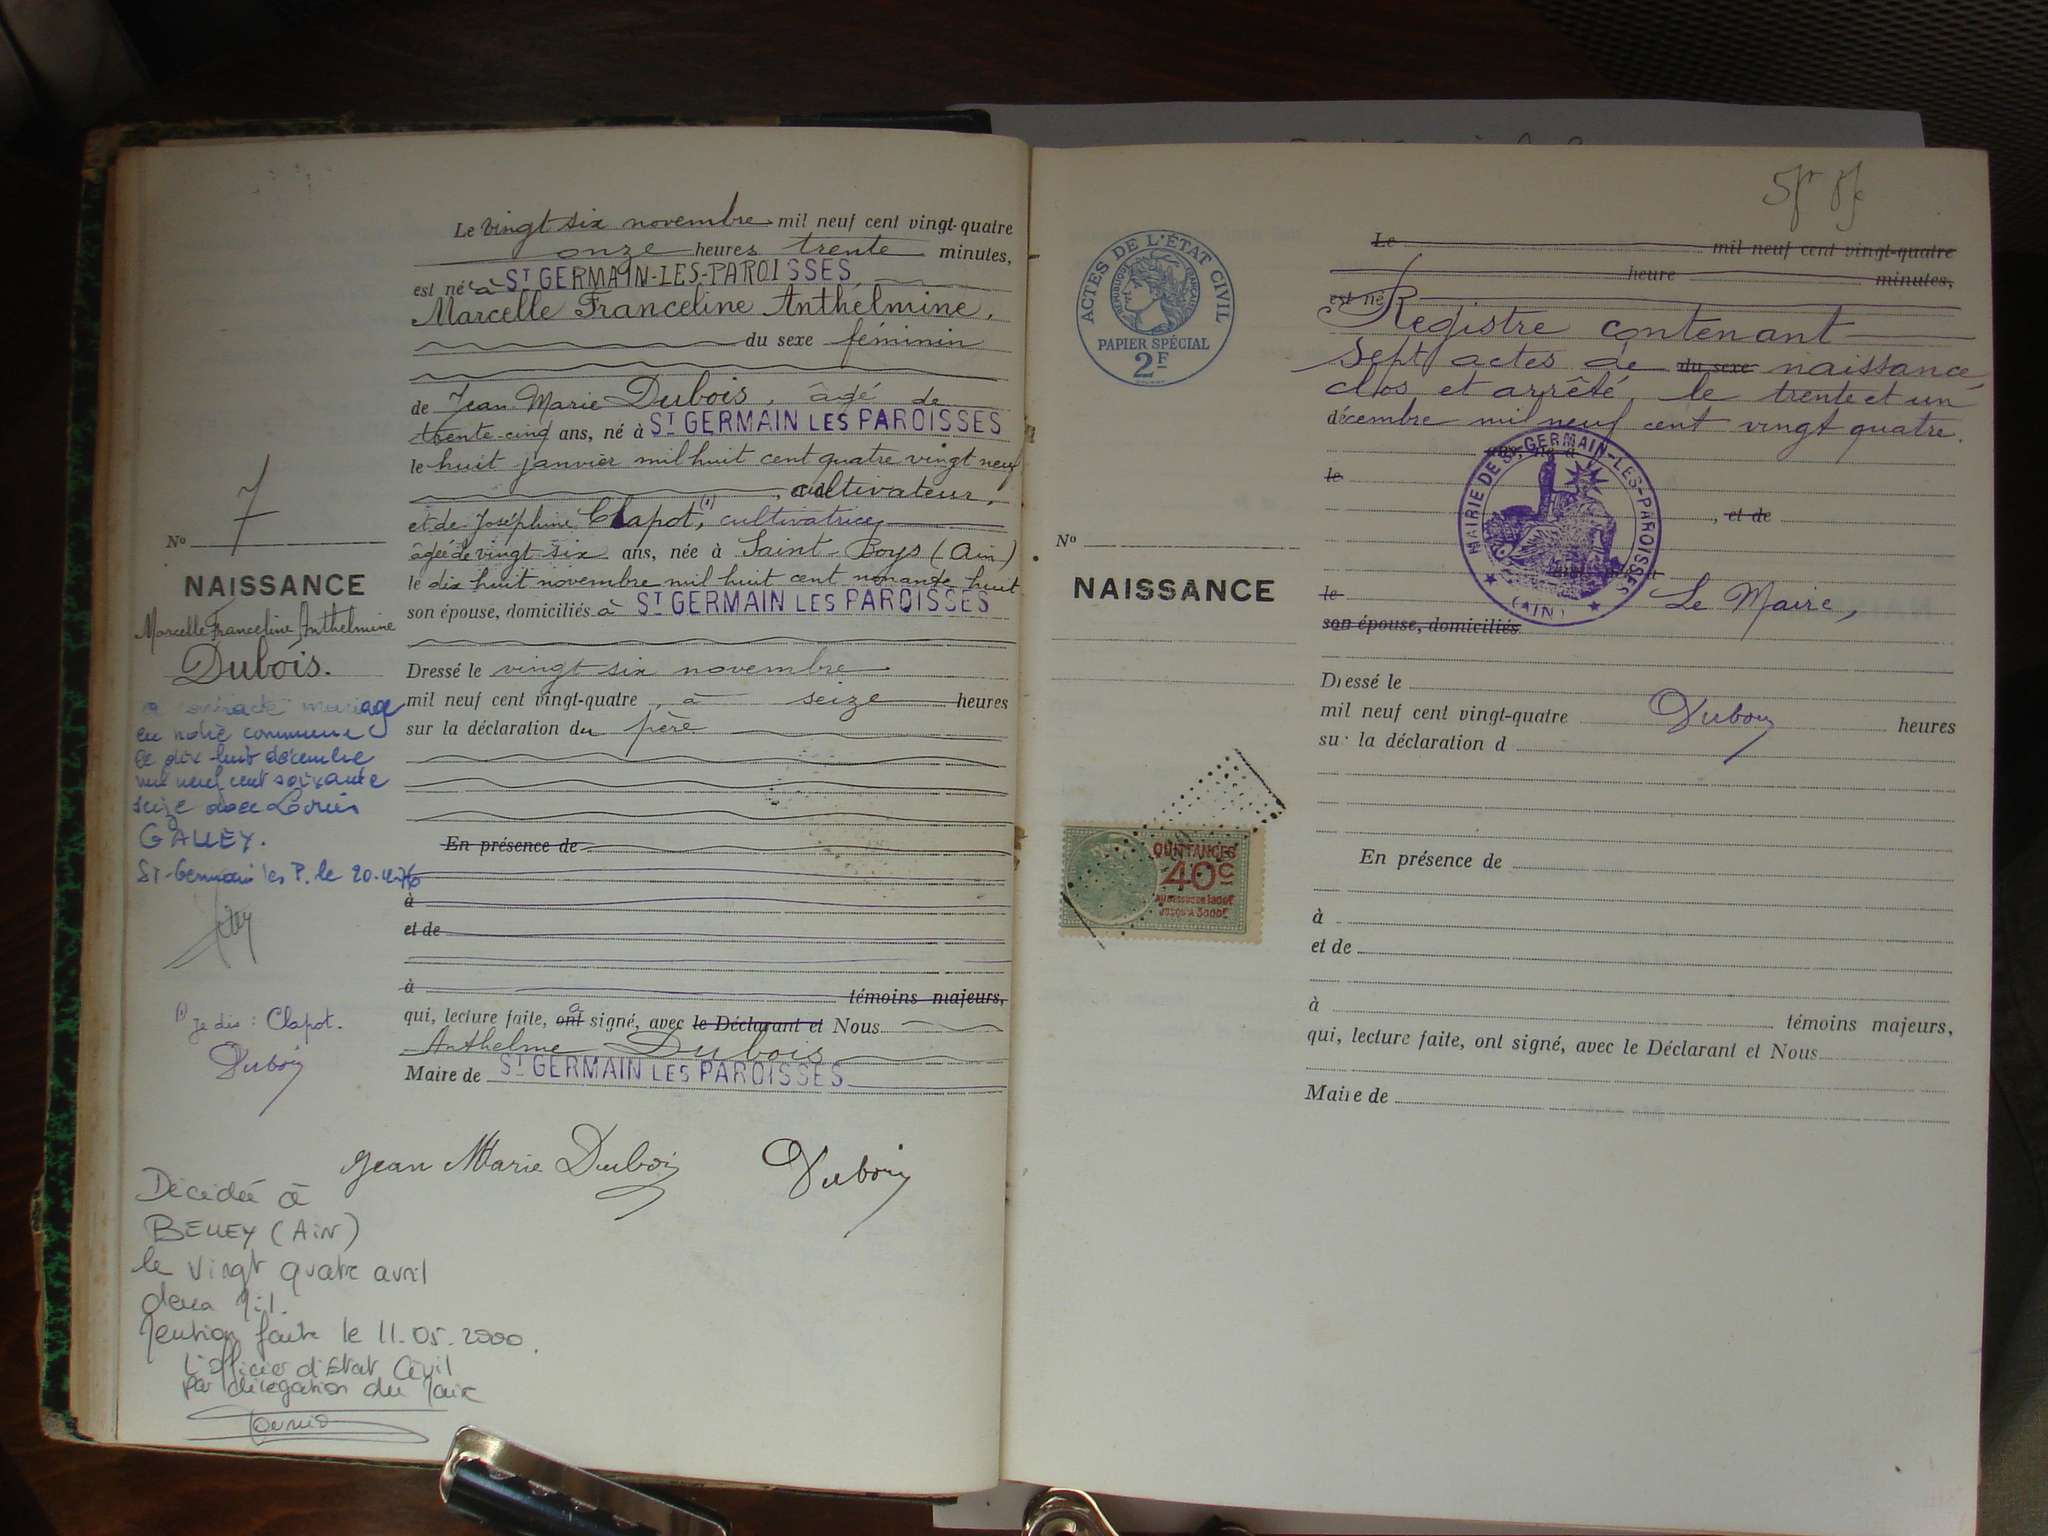 Le vingt six novembre mil neuf cent vingt-quatre
onze heures trente minutes,
est né à ST GERMAIN-LES-PAROISSES
Marcelle Franceline Anthelmine,
du sexe féminin
de Jean Marie Dubois, âgé de
trente-cinq ans, né à ST GERMAIN LES PAROISSES
le huit janvier mil huit cent quatre vingt neuf
, cultivateur,
et de Joséphine Clapot, (1) cultivatrice,
âgée de vingt six ans, née à Saint-Boys (Ain)
le dix huit novembre mil huit cent nonante huit
son épouse, domiciliés à ST GERMAIN LES PAROISSES
Dressé le vingt six novembre
mil neuf cent vingt-quatre, à seize heures
sur la déclaration du père
En présence de
à
et de
à témoins majeurs,
qui, lecture faite, ont a signé, avec le Déclarant et Nous
Anthelme Dubois
Maire de ST GERMAIN LES PAROISSES
Jean Marie Dubois Dubois
No 7
NAISSANCE
Marcelle Franceline Anthelmine
Dubois.
a contracté mariage
en notre commune
le dix huit décembre
mil neuf cent soixante
seize avec Louis
GALLEY.
St-Germain les P. le 20-12-76
(1) Je dis : Clapot.
Dubois
Décédée à
BELLEY (AIN)
le vingt quatre avril
deux mil.
Mention faite le 11.05.2000.
L'officier d'Etat Civil
par délégation du Maire
5fr
ACTES DE L'ÉTAT CIVIL
RÉPUBLIQUE FRANÇAISE
PAPIER SPÉCIAL
2F
No
NAISSANCE
QUITTANCES
40c
AU DESSUS DE 1000F
JUSQU'A 3000F
Le mil neuf cent vingt-quatre
heure minutes,
est né
Registre contenant
sept actes de du sexe naissance,
clos et arrêté, le trente et un
décembre mil neuf cent vingt quatre.
MAIRIE DE ST-GERMAIN-LES-PAROISSES
(AIN)
le
, et de
le Le Maire,
son épouse, domiciliés
Dressé le
mil neuf cent vingt-quatre Dubois heures
sur la déclaration d
En présence de
à
et de
à témoins majeurs,
qui, lecture faite, ont signé, avec le Déclarant et Nous
Maire de